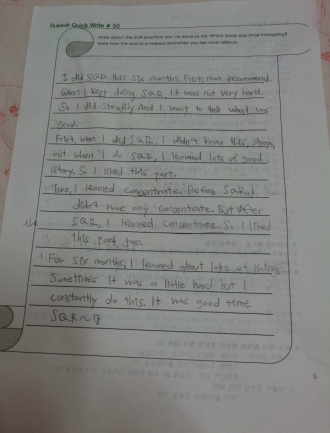 Subsuk Quick Write # 50
Write about the SQR practice you've done so far. Which book was most interesting?
Write how the practice helped and when you felt most difficult.
I did SQR this six months. First, mom recommend.
When I kept doing SQR It was not very hard.
So I did Steadily. And I want to tell what was
good.
First, when I did SQR, I didn't know this story,
but when I do SQR, I learned lots of good
story. So I liked this part.
Two, I learned concentrate. Before SQR, I
didn't have any concentrate. But After
the SQR, I learned concentrate. So I liked
this part, too.
For six months, I learned about lots of things.
Sometimes It was a little hard but I
constantly do this. It was good time
SQR~